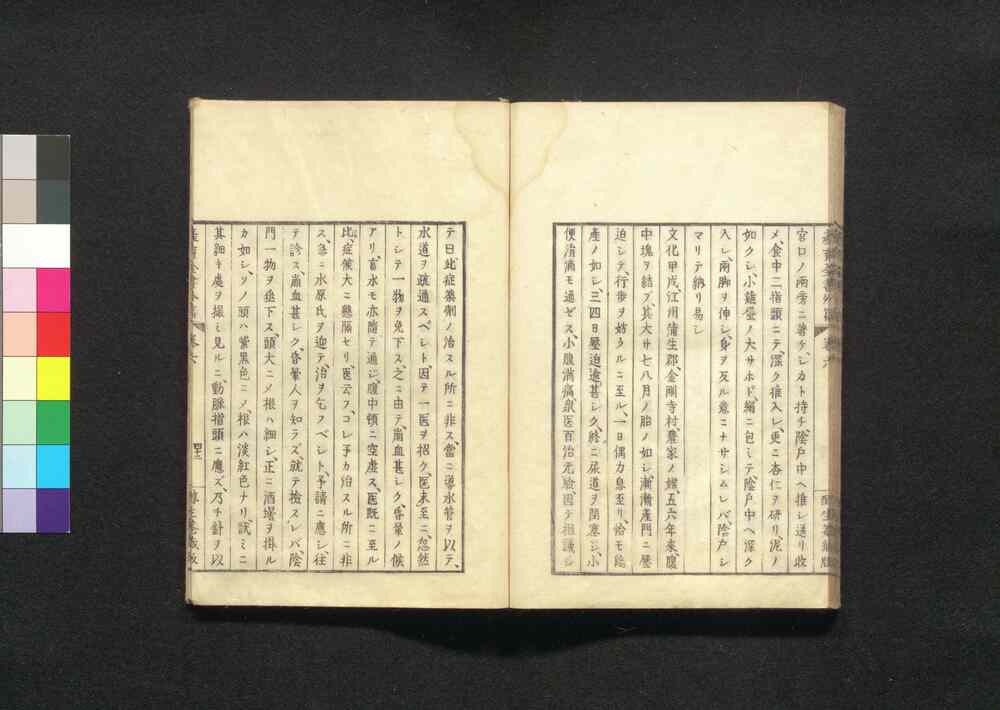 宮口ノ両旁ニ著チ、シカト持チ陰戸中ヘ推シ送リ收
メ、食中二指頭ニテ、深ク推入レ、更ニ杏仁ヲ研リ、泥ノ
如クシ、小鶏蛋ノ大サホド、絹ニ包ミテ、陰戸中ヘ深ク
入レ、両脚ヲ伸シ、身ヲ反ル意ニナサシムレバ、陰戸シ
マリテ納リ易シ
文化甲戌、江州蒲生郡、金剛寺村、農家ノ嫂、五六年来腹
中塊ヲ結ブ、其大サ七八月ノ胎ノ如シ、漸漸産門ニ壓
迫シテ、行歩ヲ妨クルニ至ル、一日偶力息至リ、恰モ臨
産ノ如シ、三四日壓迫逾甚シク、終ニ尿道ヲ閉塞シ、小
便涓滴モ通ゼズ、小腹満痛、衆医百治無驗、因テ相議シ
テ曰、此症薬剤ノ治スル所ニ非ス、當ニ導水管ヲ以テ、
水道ヲ疏通スベシト、因テ一医ヲ招ク、医来至ニ、忽然
トシテ一物ヲ免下ス、之ニ由テ、崩血甚シク、昏暈ノ候
アリ、畜水モ亦隨テ通シ、腹中頓ニ空虚ス、医既ニ至ル
比、症候大ニ懸隔セリ、医云フ、コレ予カ治スル所ニ非
ス、急ニ水原氏ヲ迎テ、治ヲ乞フベシト、予請ニ應シ、往
テ診ス、崩血甚シク、昏暈人ヲ知ラズ、就テ檢スレバ、陰
門一物ヲ垂下ス、頭大ニメ根ハ細シ、正ニ酒壜ヲ掛ル
カ如シ、ソノ頭ハ紫黒色ニメ、根ハ淡紅色ナリ、試ミニ
其細キ處ヲ撮ミ見ルニ、動脈指頭ニ應ズ、乃チ針ヲ以